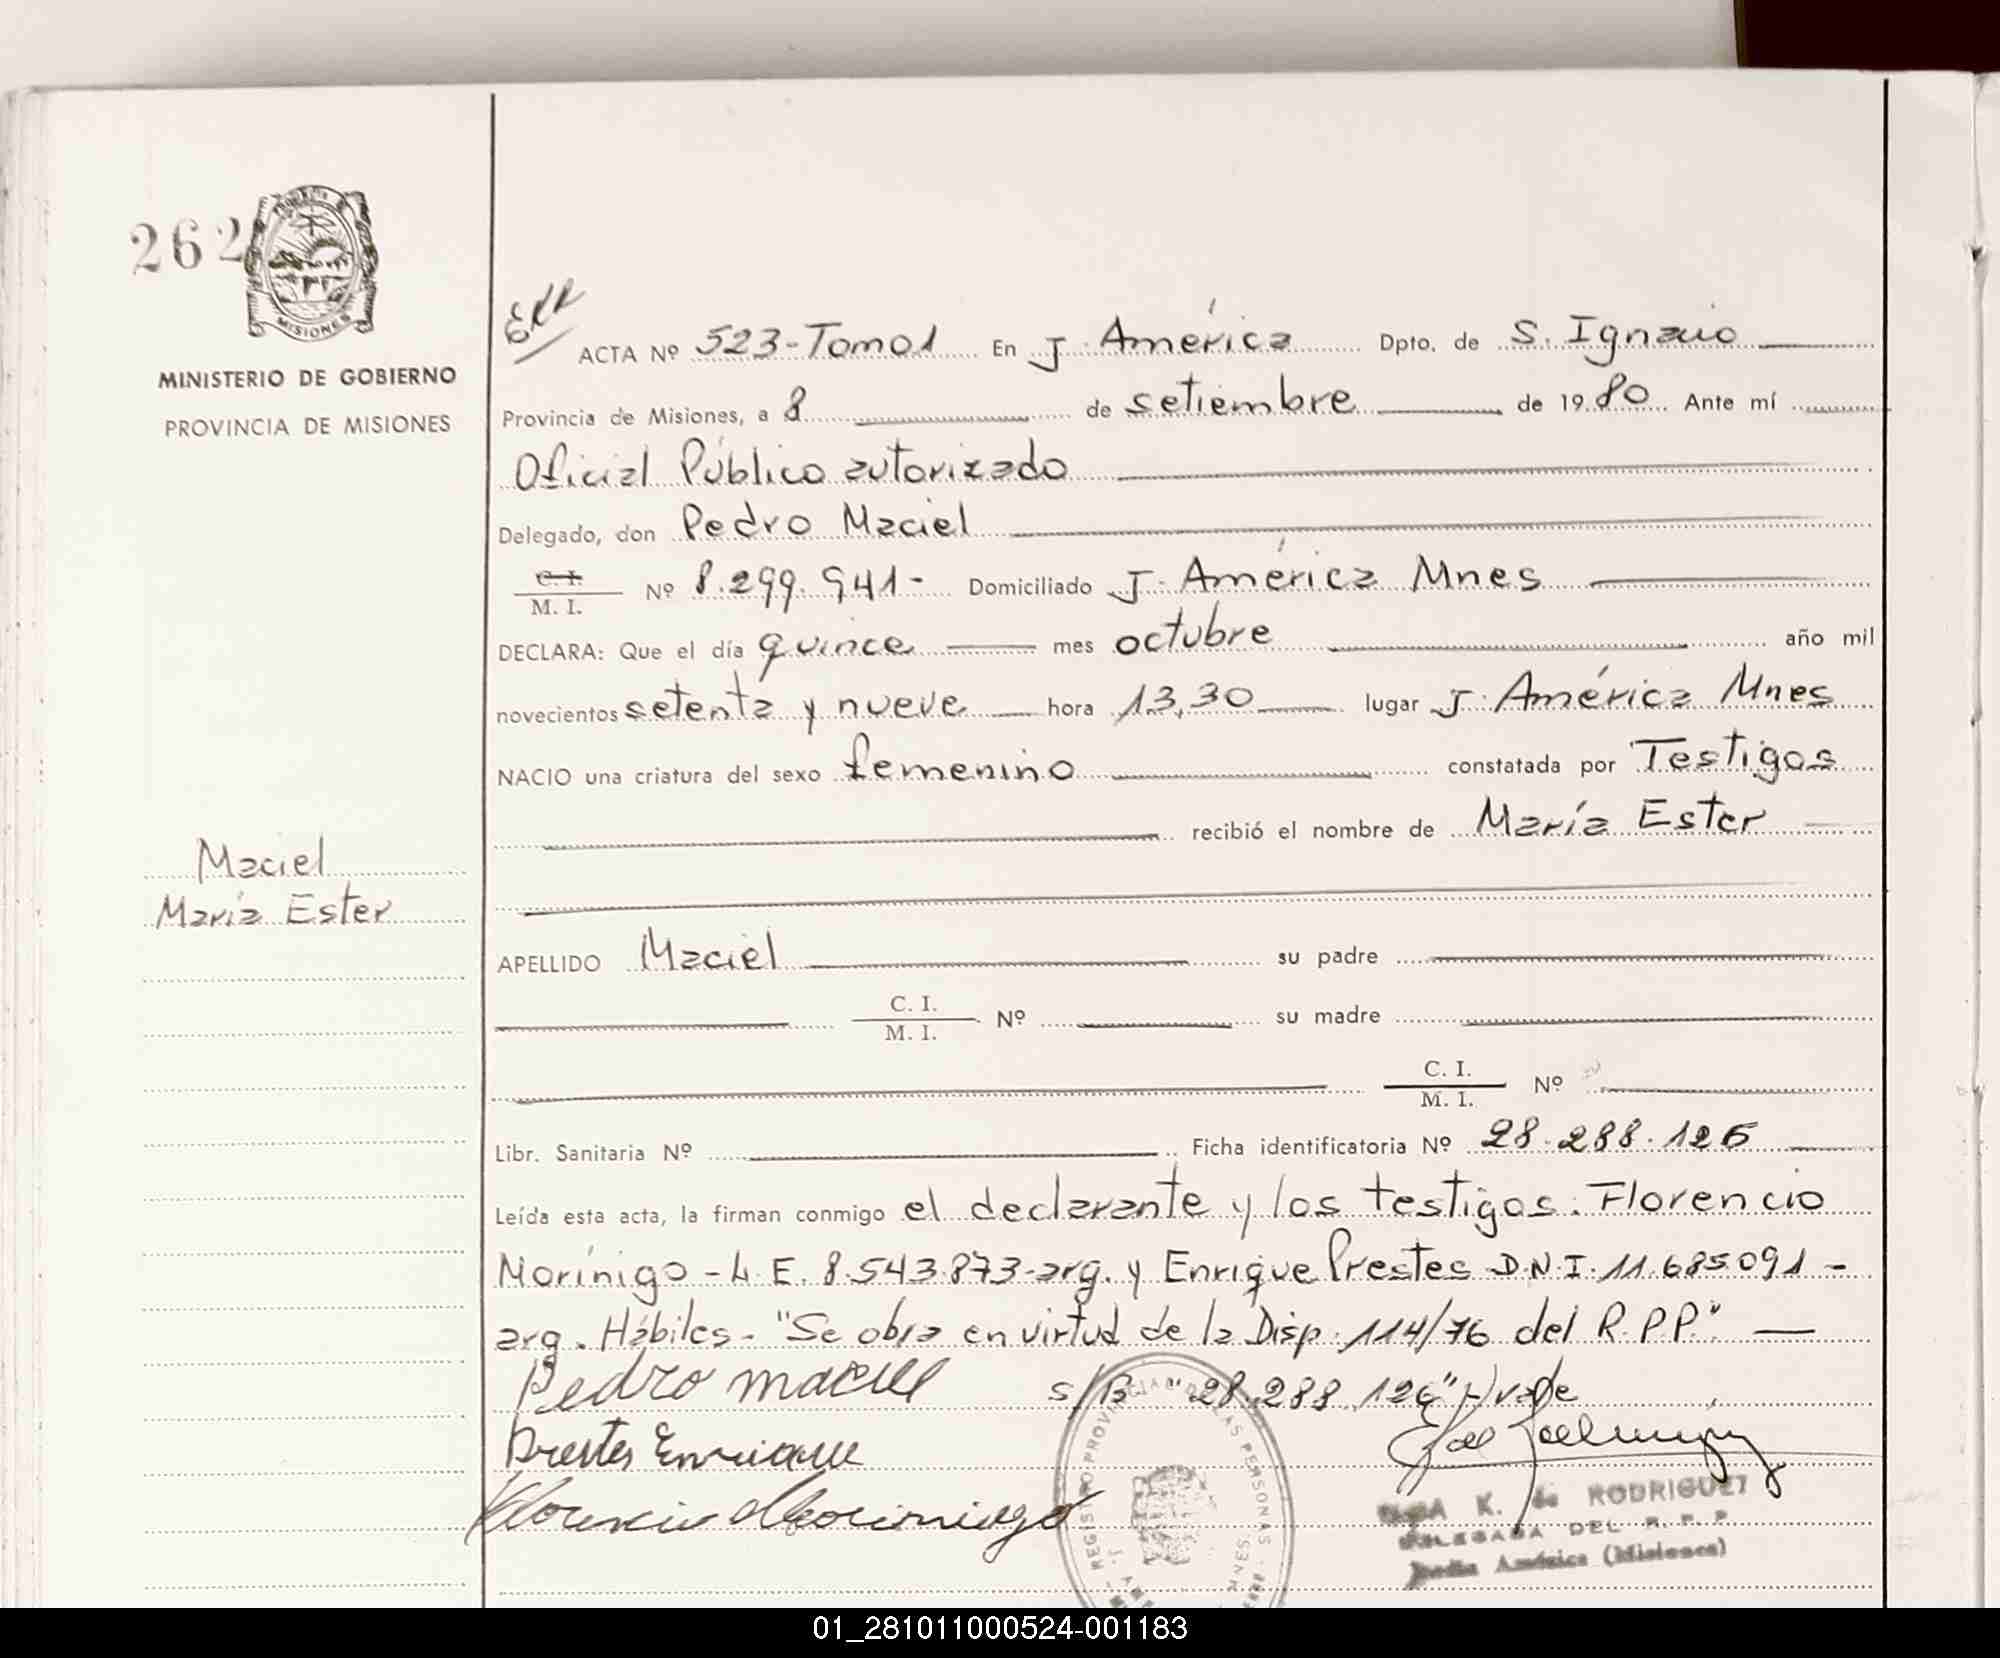 262
MISIONES
MINISTERIO DE GOBIERNO
PROVINCIA DE MISIONES
ACTA Nº 523-Tomo1 En J. América Dpto. de S. Ignacio
Provincia de Misiones, a 8 de setiembre de 1980. Ante mí
Oficial Público autorizado
Delegado, don Pedro Maciel
C. I.
M. I. Nº 8.299.941- Domiciliado J. América Mnes
DECLARA: Que el día quince mes octubre año mil
novecientos setenta y nueve hora 13,30 lugar J. América Mnes
NACIO una criatura del sexo femenino constatada por Testigos
recibió el nombre de María Ester
Maciel
María Ester
APELLIDO Maciel su padre
C. I.
M. I. Nº su madre
C. I.
M. I. Nº
Libr. Sanitaria Nº Ficha identificatoria Nº 28.288.126
Leída esta acta, la firman conmigo el declarante y los testigos: Florencio
Morínigo - L.E. 8.543.873-arg. y Enrique Prestes D.N.I. 11.685.091-
arg. Hábiles- "Se obra en virtud de la Disp. 114/76 del R.P.P."
Pedro Maciel s/B "28.288.126" vale
Prestes Enrique
Florencio Morinigo
K. de RODRIGUEZ
DELEGADA DEL R. P. P
Jardin América (Misiones)
REGISTRO PROVINCIAL DE LAS PERSONAS
01_281011000524-001183